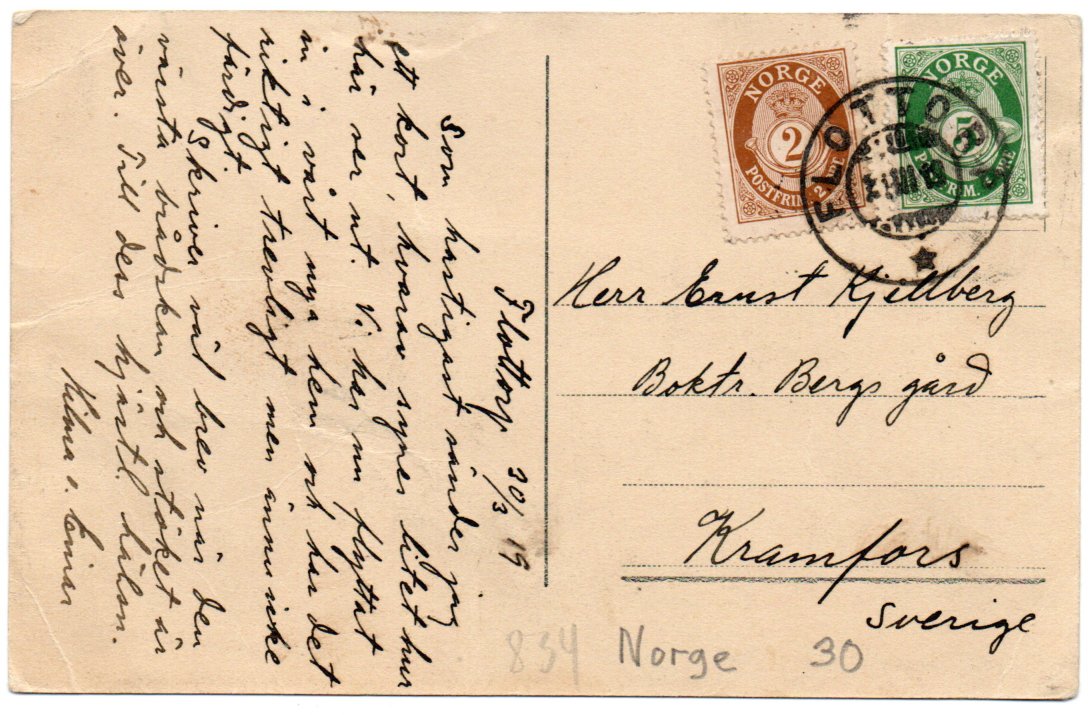 Flottorp 30/3 19
Som hastigast sänder jag
ett kort, hvarav synes litet hur
här ser ut. Vi har nu flyttat
in i vårt nya hem och har det
riktigt trevligt men ännu icke
färdigt.
Skriver väl brev när den
värsta brådskan och stöket är
över. Till dess hjärtl. hälsn.
Vilma o. Einar
NORGE
2
POSTFRIM. 2 ØRE
NORGE
5
POSTFRIM. 5 ØRE
FLOTTORP
Herr Ernst Kjellberg
Boktr. Bergs gård
Kramfors
Sverige
834 Norge 30